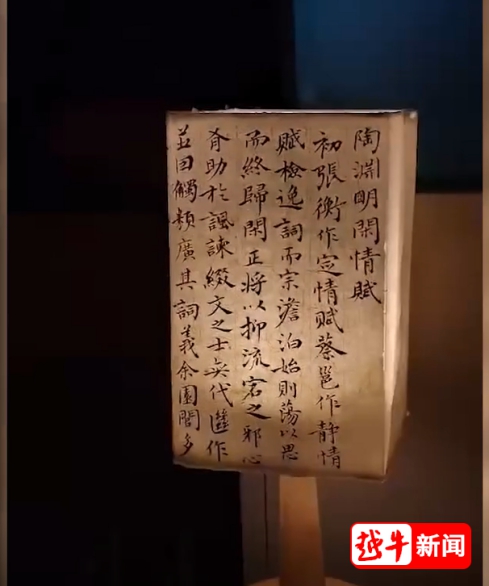 陶淵明閑情賦
初張衡作定情賦蔡邕作靜情
賦檢逸詞而宗澹泊始則蕩以思
而終歸閑正將以抑流宕之邪心
有助於諷諫綴文之士奕代繼作
並因觸類廣其詞義余園閭多
越牛新闻